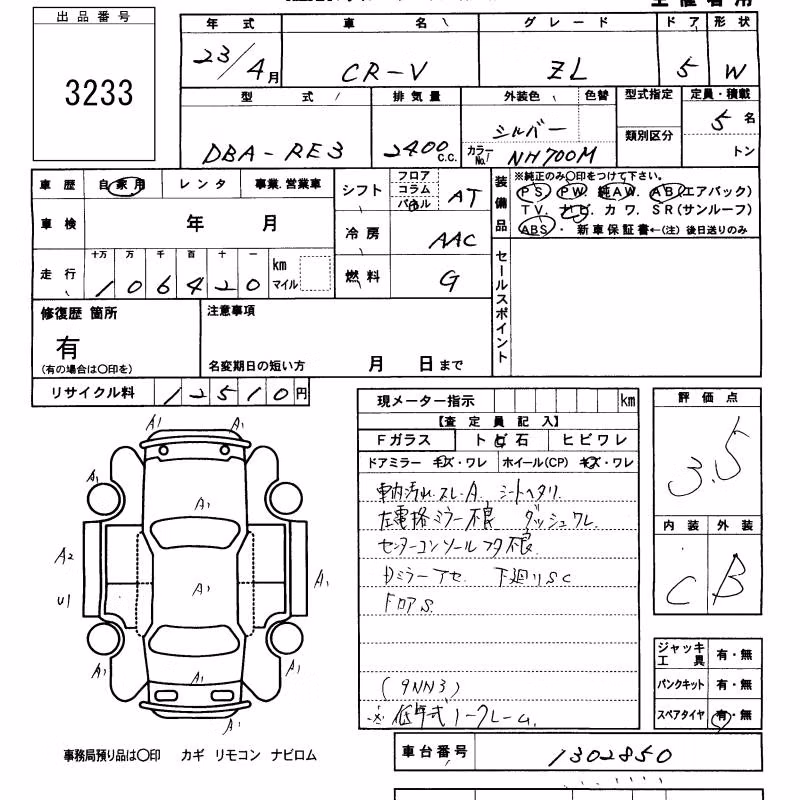 出品番号
3233
年式 車名 グレード ドア 形状
23/4月 CR-V ZL 5 W
型式 排気量 外装色 色替 型式指定 定員・積載
DBA-RE3 2400c.c. シルバー 類別区分 5名
カラーNo. NH700M トン
車歴 自家用 レンタ 事業.営業車
シフト フロア コラム パネル AT
装備品 ※純正のみ〇印をつけて下さい。
PS PW 純AW. AB(エアバック)
TV. ナビ. カワ. SR(サンルーフ)
ABS・ 新車保証書←(注) 後日送りのみ
車検 年 月
冷房 AAC
走行 十万 万 千 百 十 一
106420 km マイル
燃料 G
セールスポイント
修復歴 箇所
有
(有の場合は〇印を)
注意事項
名変期日の短い方 月 日まで
リサイクル料 12510円
現メーター指示 km
【査定員記入】
Fガラス トビ石 ヒビワレ
ドアミラー キズ・ワレ ホイール(CP) キズ・ワレ
車内汚れ スレ-A. シートヘタリ.
左電格ミラー不良 ダッシュワレ.
センターコンソールフタ不良.
Dミラーアセ. 下廻りSC
FロアS.
(9NN3)
※低年式ノークレーム.
評価点
3.5
内装 外装
C B
ジャッキ工具 有・無
パンクキット 有・無
スペアタイヤ 有・無
A1 A1
A1
A1
A2
U1
A1
A1
A1 A1 A1
A1
事務局預り品は〇印 カギ リモコン ナビロム
車台番号 1302850